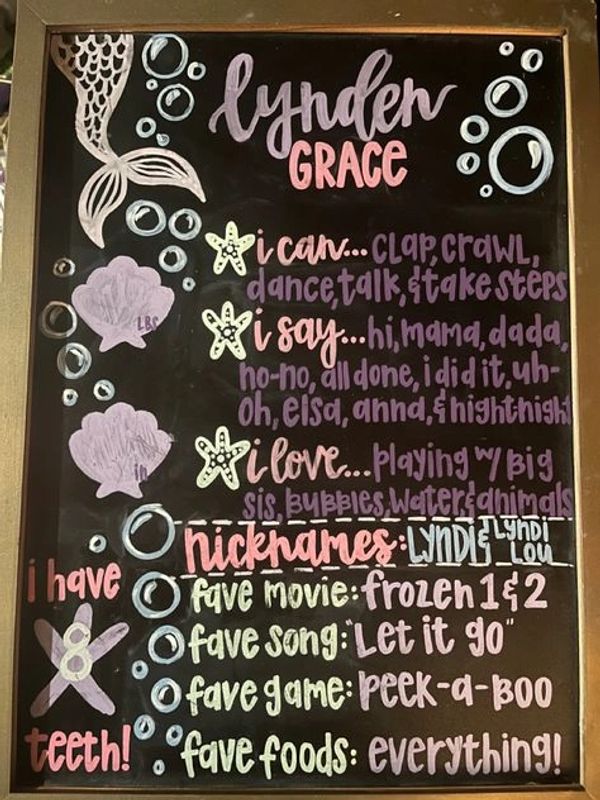 lynden
GRACE
i can... clap, crawl,
dance, talk, & take steps
LBS
i say... hi, mama, dada,
no-no, all done, i did it, uh-
oh, elsa, anna, & night-night
in
i love... playing w/ big
sis, bubbles, water & animals
nicknames: LYNDI & LYNDI
LOU
i have
8
teeth!
fave movie: frozen 1 & 2
fave song: "Let it go"
fave game: peek-a-boo
fave foods: everything!